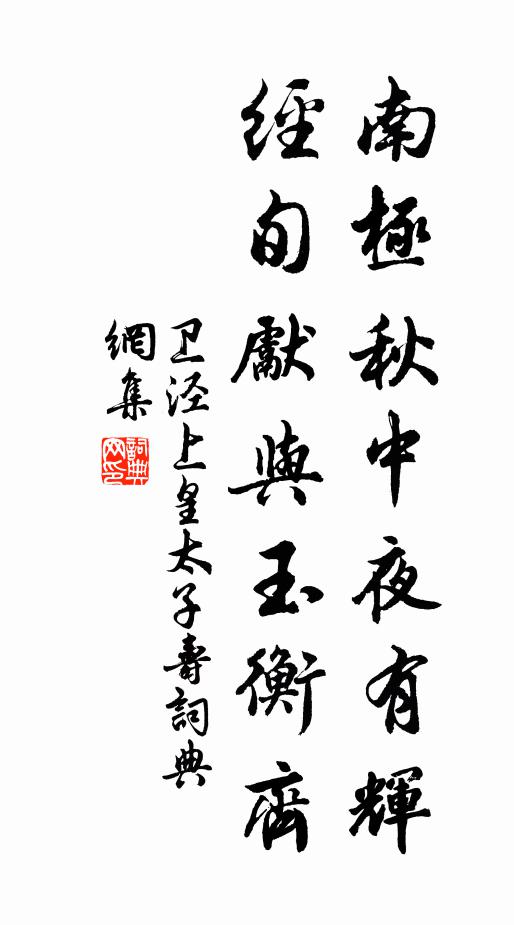 南極秋中夜有輝
經旬獻與玉衡齊
卫泾上皇太子壽詞典
網集
詞典網印